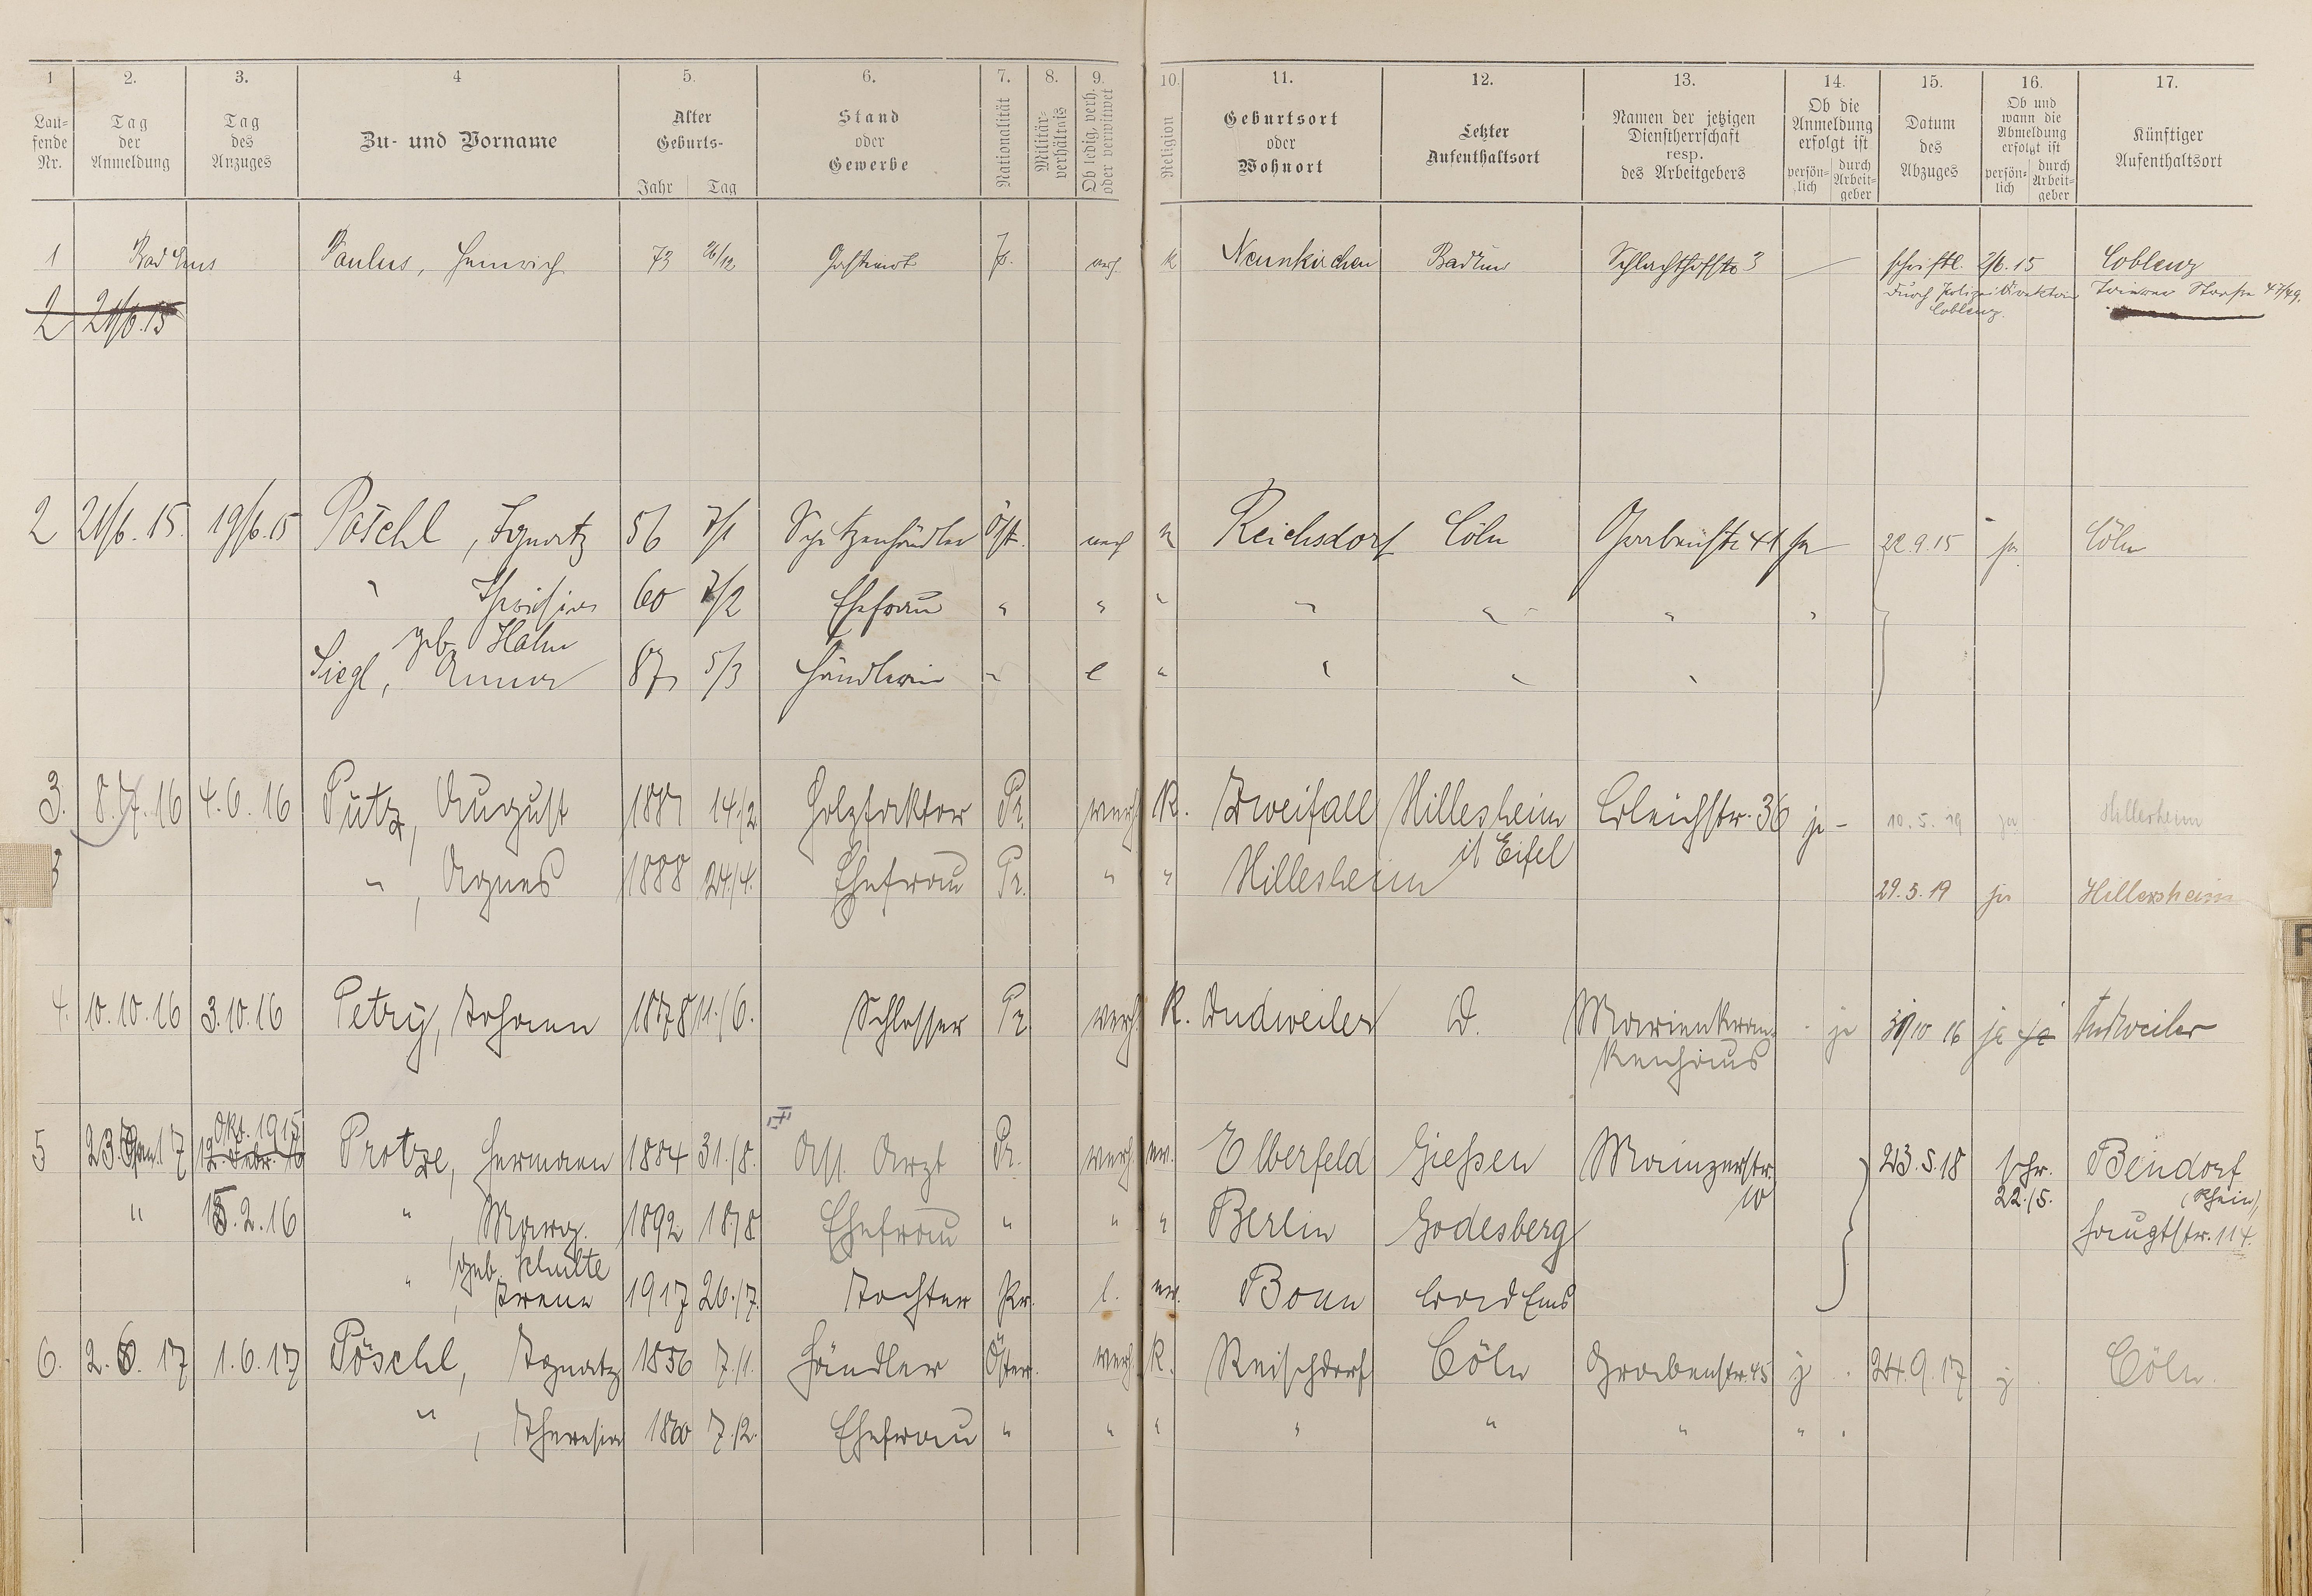 1 2. 3. 4 5. 6. 7. 8. 9. 10. 11. 12. 13. 14. 15. 16. 17.
Lau-
fende
Nr.
Tag
der
Anmeldung
Tag
des
Anzuges
Zu- und Vorname
Alter
Geburts-
Jahr Tag
Stand
oder
Gewerbe
Nationalität
Militär-
verhältnis
Ob ledig, verh.
oder verwitwet
Religion
Geburtsort
oder
Wohnort
Letzter
Aufenthaltsort
Namen der jetzigen
Dienstherrschaft
resp.
des Arbeitgebers
Ob die
Anmeldung
erfolgt ist
persön-
lich
durch
Arbeit-
geber
Datum
des
Abzuges
Ob und
wann die
Abmeldung
erfolgt ist
persön-
lich
durch
Arbeit-
geber
Künftiger
Aufenthaltsort
1 Bad Ems Paulus, Heinrich 73 26/12 Gastwirt verh. k Neunkirchen Bad Ems Schlachthofstr 3 schriftl. 2/6.15 Coblenz
durch Polizei Direktion Trierer Straße 47/49.
Coblenz.
2 21/6.15
2 21/6.15. 19/6.15 Pöschl, Ignatz 56 7/1 Spitzenhändler Öst. verh k Reichsdorf Cöln Grabenstr 41 ja 22.9.15 ja Cöln
" Theresia 60 7/2 Ehefrau " " " " " " "
geb. Hahn
Siegl, Anna 87 5/3 Händlerin " l " " " "
3. 8.7.16 4.6.16 Pütz, August 1887 14./2. Holzfaktor Pr. verh. K. Zweifall Hillesheim Bleichstr. 36 ja - 10.5.19 ja Hillesheim
i/ Eifel
3 ", Agnes 1888 24./4. Ehefrau Pr. " " Hillesheim 29.5.19 ja Hillersheim
4. 10.10.16 3.10.16 Petry, Johann 1878 11./6. Schlosser Pr. verh. K. Dudweiler D. Marienkran- ja 31/10 16 ja ja Dudweiler
kenhaus
Okt. 1915
5 23. Jan. 17 12. Febr. 16 Protze, Hermann 1884 31./8. Ass. Arzt Pr. verh. ev. Elberfeld Giessen Mainzerstr. 23.5.18 schr. Bendorf
10 22./5. (Rhein),
" 15.2.16 ", Marg. 1892 18./8 Ehefrau " " " Berlin Godesberg Hauptstr. 114.
geb. Schulte
", Irene 1917 26./7. Tochter Pr. l. ev. Bonn Bad Ems
6. 2.6.17 1.6.17 Pöschl, Ignatz 1856 7./1. Händler Öster. verh. K. Reischdorf Cöln Grabenstr. 45 j . 24.9.17 j Cöln.
", Theresia 1860 7./2. Ehefrau " " " " " " " .